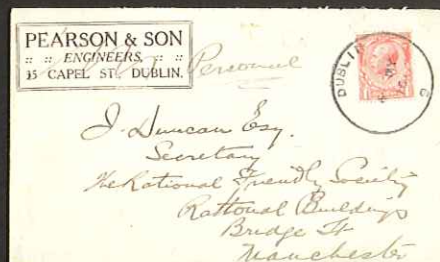 PEARSON & SON
:: :: ENGINEERS, :: ::
15 CAPEL ST. DUBLIN.
Personal
DUBLIN
J. Duncan Esq.
Secretary
The Rational Friendly Society
Rational Buildings
Bridge St
Manchester